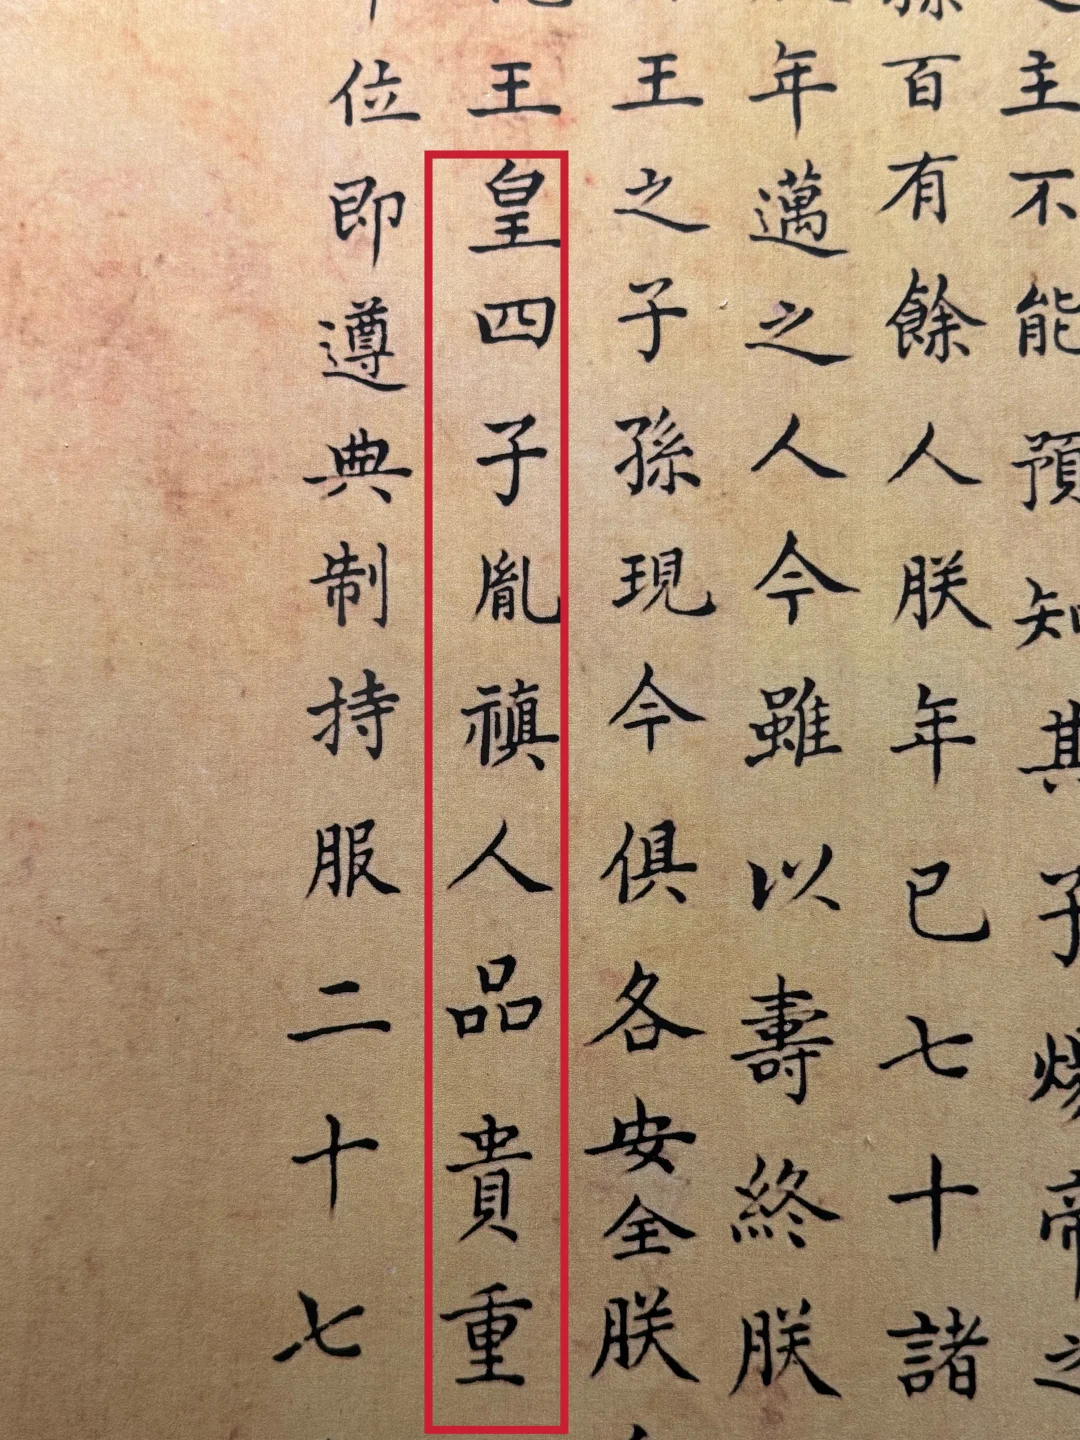 主不能預知其子煬帝之
百有餘人朕年已七十諸
年邁之人今雖以壽終朕
王之子孫現今俱各安全朕
王皇四子胤禛人品貴重
位即遵典制持服二十七